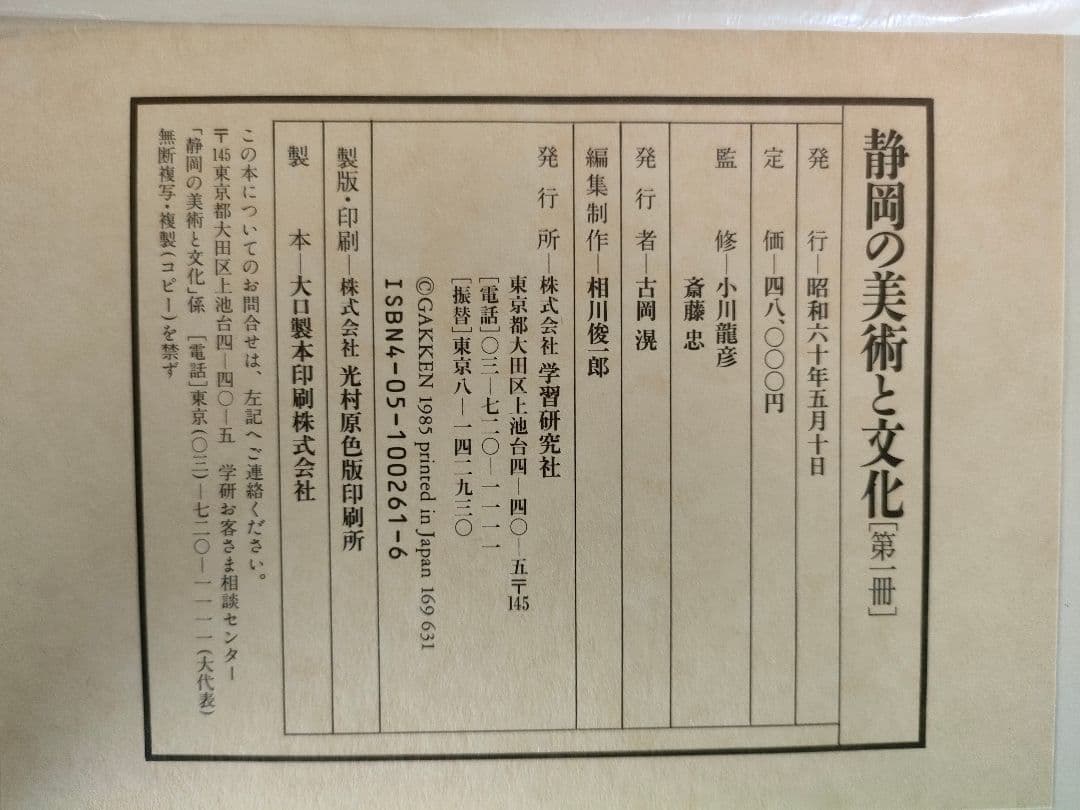 静岡の美術と文化[第一冊]
発行─昭和六十年五月十日
定価─四八、〇〇〇円
監修─小川龍彦
斎藤忠
発行者─古岡滉
編集制作─相川俊一郎
発行所─株式会社 学習研究社
東京都大田区上池台四─四〇─五〒145
[電話]〇三─七二〇─一一一一
[振替]東京八─一四二九三〇
©GAKKEN 1985 printed in Japan 169 631
ISBN4-05-100261-6
製版・印刷─株式会社 光村原色版印刷所
製本─大口製本印刷株式会社
この本についてのお問合せは、左記へご連絡ください。
〒145東京都大田区上池台四─四〇─五 学研お客さま相談センター
「静岡の美術と文化」係 [電話]東京(〇三)─七二〇─一一一一(大代表)
無断複写・複製(コピー)を禁ず